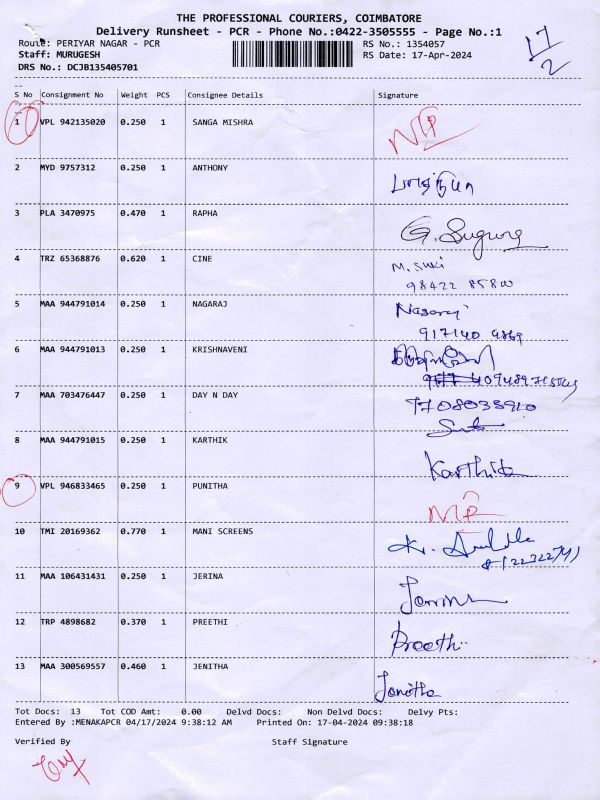 THE PROFESSIONAL COURIERS, COIMBATORE
Delivery Runsheet - PCR - Phone No.:0422-3505555 - Page No.:1
Route: PERIYAR NAGAR - PCR RS No.: 1354057
Staff: MURUGESH RS Date: 17-Apr-2024
DRS No.: DCJB135405701
17/2
S No Consignment No Weight PCS Consignee Details Signature
1 VPL 942135020 0.250 1 SANGA MISHRA
2 MYD 9757312 0.250 1 ANTHONY
3 PLA 3470975 0.470 1 RAPHA G. Suguna
4 TRZ 65368876 0.620 1 CINE M. Suki
5 MAA 944791014 0.250 1 NAGARAJ Nagaraj
6 MAA 944791013 0.250 1 KRISHNAVENI
7 MAA 703476447 0.250 1 DAY N DAY
8 MAA 944791015 0.250 1 KARTHIK Karthik
9 VPL 946833465 0.250 1 PUNITHA
10 TMI 20169362 0.770 1 MANI SCREENS
11 MAA 106431431 0.250 1 JERINA
12 TRP 4898682 0.370 1 PREETHI Preethi
13 MAA 300569557 0.460 1 JENITHA Jenitha
Tot Docs: 13 Tot COD Amt: 0.00 Delvd Docs: Non Delvd Docs: Delvy Pts:
Entered By :MENAKAPCR 04/17/2024 9:38:12 AM Printed On: 17-04-2024 09:38:18
Verified By Staff Signature